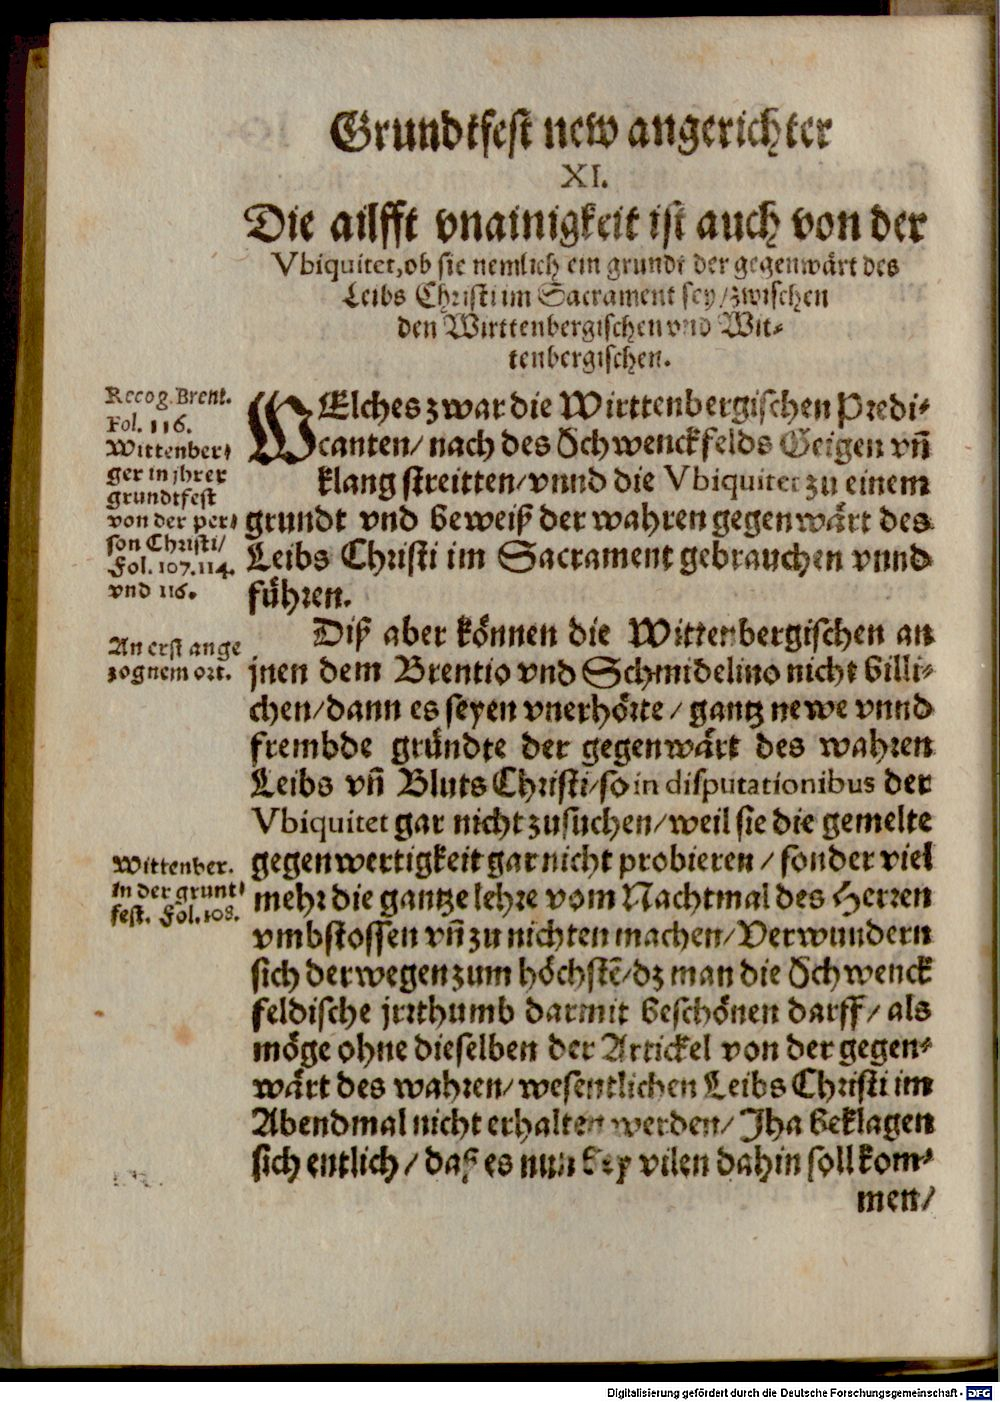 Grundtfest new angerichter
XI.
Die ailfft vnainigkeit ist auch von der
Vbiquitet, ob sie nemlich ein grundt der gegenwärt des
Leibs Christi im Sacrament sey / zwischen
den Wirttenbergischen vnd Wit-
tenbergischen.
Recog. Brent.
Fol. 116.
Wittenber-
ger in jhrer
grundtfest
von der per-
son Christi /
Fol. 107. 114.
vnd 116.
WElches zwar die Wirttenbergischen Predi-
canten / nach des Schwenckfelds Geigen vñ
klang streitten / vnnd die Vbiquitet zu einem
grundt vnd beweiß der wahren gegenwärt des
Leibs Christi im Sacrament gebrauchen vnnd
führen.
An erst ange
zognem ort.
Diß aber können die Wittenbergischen an
jnen dem Brentio vnd Schmidelino nicht billi-
chen / dann es seyen vnerhörte / gantz newe vnnd
frembde gründte der gegenwärt des wahren
Leibs vñ Bluts Christi / so in disputationibus der
Vbiquitet gar nicht zusuchen / weil sie die gemelte
Wittenber.
in der grunt-
fest. Fol. 108.
gegenwertigkeit gar nicht probieren / sonder viel
mehr die gantze lehre vom Nachtmal des Herren
vmbstossen vñ zu nichten machen / Verwundern
sich derwegen zum höchstẽ / dz man die Schwenck
feldische jrrthumb darmit beschönen darff / als
möge ohne dieselben der Artickel von der gegen-
wärt des wahren / wesentlichen Leibs Christi im
Abendmal nicht erhalten werden / Jha beklagen
sich entlich / daß es nun bey vilen dahin soll kom-
men /
Digitalisierung gefördert durch die Deutsche Forschungsgemeinschaft - DFG